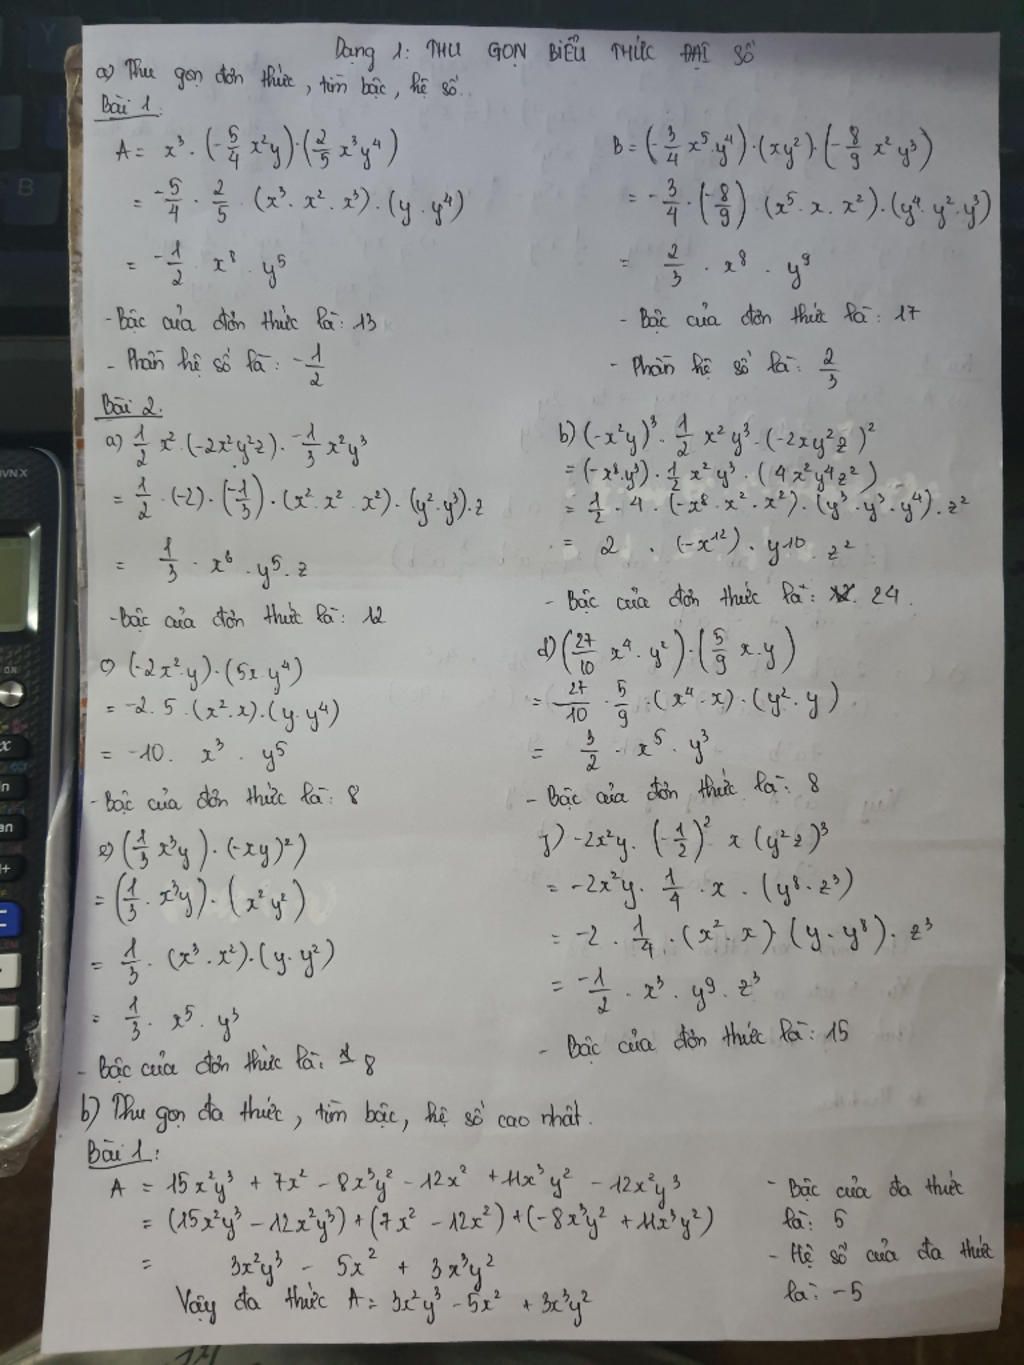 Dạng 1: THU GỌN BIỂU THỨC ĐẠI SỐ
a) Thu gọn đơn thức, tìm bậc, hệ số.
Bài 1.
A = x³ · (-5/4 x²y) · (2/5 x³y⁴)
= -5/4 · 2/5 · (x³ · x² · x³) · (y · y⁴)
= -1/2 · x⁸ · y⁵
- Bậc của đơn thức là: 13
- Phần hệ số là: -1/2
B = (-3/4 x⁵·y⁴) · (xy²) · (-8/9 x²y³)
= -3/4 · (-8/9) · (x⁵ · x · x²) · (y⁴ · y² · y³)
= 2/3 · x⁸ · y⁹
- Bậc của đơn thức là: 17
- Phần hệ số là: 2/3
Bài 2.
a) 1/2 x² · (-2x²y²z) · -1/3 x²y³
= 1/2 · (-2) · (-1/3) · (x² · x² · x²) · (y² · y³) · z
= 1/3 · x⁶ · y⁵ · z
- Bậc của đơn thức là: 12
b) (-x²y)³ · 1/2 x²y³ · (-2xy²z)²
= (-x⁸·y³) · 1/2 x²y³ · (4x²y⁴z²)
= 1/2 · 4 · (-x⁸ · x² · x²) · (y³ · y³ · y⁴) · z²
= 2 · (-x¹²) · y10 · z²
- Bậc của đơn thức là: 24.
c) (-2x²·y) · (5x·y⁴)
= -2 · 5 · (x² · x) · (y · y⁴)
= -10 · x³ · y⁵
- Bậc của đơn thức là: 8
d) (27/10 x⁴ · y²) · (5/9 x·y)
= 27/10 · 5/9 · (x⁴ · x) · (y² · y)
= 3/2 · x⁵ · y³
- Bậc của đơn thức là: 8
e) (1/3 x³y) · (-xy)²)
= (1/3 · x³y) · (x²y²)
= 1/3 · (x³ · x²) · (y · y²)
= 1/3 · x⁵ · y³
- Bậc của đơn thức là: 8
f) -2x²y · (-1/2)² x (y²z)³
= -2x²y · 1/4 · x · (y⁸ · z³)
= -2 · 1/4 · (x² · x) · (y · y⁸) · z³
= -1/2 · x³ · y⁹ · z³
- Bậc của đơn thức là: 15
b) Thu gọn đa thức, tìm bậc, hệ số cao nhất.
Bài 1:
A = 15x²y³ + 7x² - 8x³y² - 12x² + 11x³y² - 12x²y³
= (15x²y³ - 12x²y³) + (7x² - 12x²) + (-8x³y² + 11x³y²)
= 3x²y³ - 5x² + 3x³y²
Vậy đa thức A = 3x²y³ - 5x² + 3x³y²
- Bậc của đa thức
là: 5
- Hệ số của đa thức
là: -5